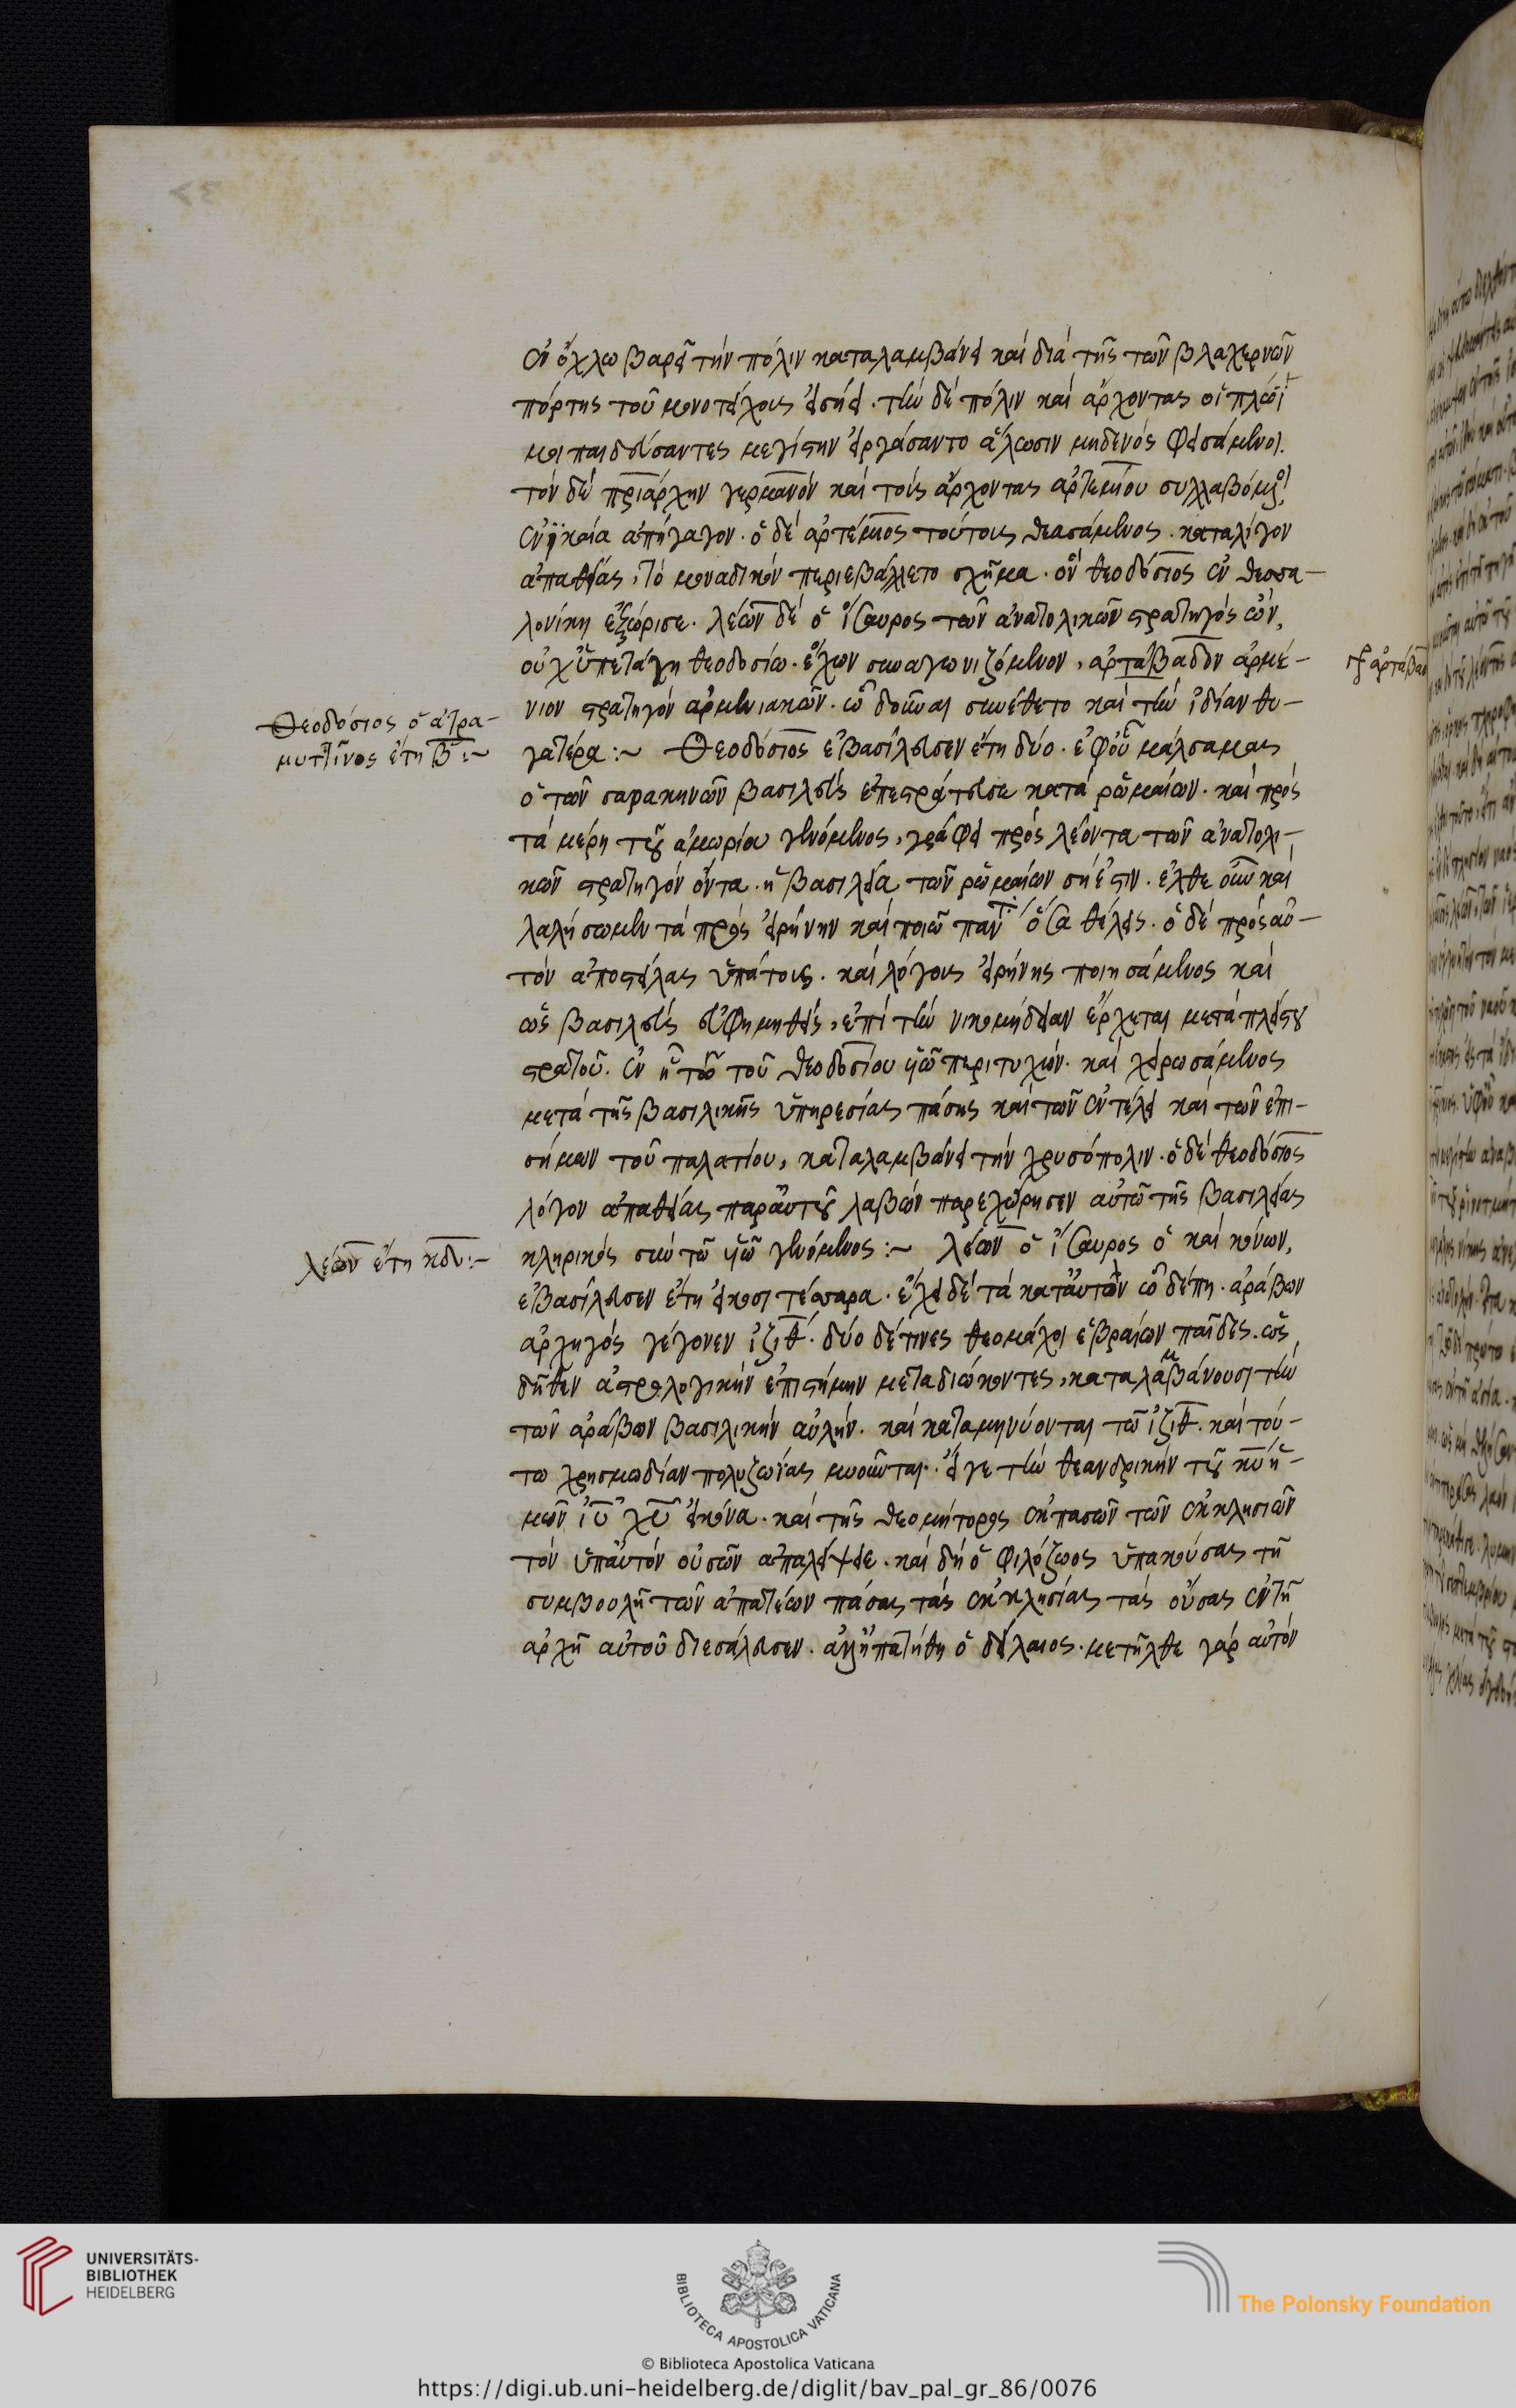 ἐν ὄχλω βαρεῖ τὴν πόλιν καταλαμβάνει καὶ διὰ τῆς τῶν βλαχερνῶν
πόρτης τοῦ μονοτείχους εἰσήει. τὴν δὲ πόλιν καὶ ἄρχοντας οἱ πλώϊ
μοι παιδεύσαντες μεγίστην εἰργάσαντο ἅλωσιν μηδενὸς φεισάμενοι.
τὸν δὲ πριάρχην γερμανὸν καὶ τοὺς ἄρχοντας ἀρτεμίου συλλαβόμενοι
ἐν νικαία ἀπήγαγον. ὁ δὲ ἀρτέμιος τούτους θεασάμενος. καταλέγον
ἀπαθείας, τὸ μοναδικὸν περιεβάλλετο σχῆμα. ὃν θεοδόσιος ἐν θεσσα-
λονίκη ἐξώρισε. λέων δὲ ὁ ἴσαυρος τῶν ἀνατολικῶν στρατηγὸς ὢν,
οὐχ ὑπετάγη θεοδοσίω. ἔχων συναγωνιζόμενον, ἀρτάβασδον ἀρμέ-
νιον στρατηγὸν ἀρμενιακῶν. ὧ δοῦναι συνέθετο καὶ τὴν ἰδίαν θυ-
γατέρα :~ Θεοδόσιος ἐβασίλευσεν ἔτη δύο. ἐφ' οὗ μάλσαμας
ὁ τῶν σαρακηνῶν βασιλεὺς ἐπεστράτευσε κατὰ ῥωμαίων. καὶ πρὸς
τὰ μέρη τοῦ ἀμωρίου γενόμενος, γράφει πρὸς λέοντα τῶν ἀνατολι-
κῶν στρατηγὸν ὄντα. ἡ βασιλεία τῶν ῥωμαίων σή ἐστιν. ἐλθὲ οὖν καὶ
λαλήσωμεν τὰ πρὸς εἰρήνην καὶ ποιῶ πάντα ὅσα θέλεις. ὁ δὲ πρὸς αὐ-
τὸν ἀποστείλας ὑπάτους. καὶ λόγους εἰρήνης ποιησάμενος καὶ
ὡς βασιλεὺς εὐφημηθεὶς, ἐπὶ τὴν νικομήδειαν ἔρχεται μετὰ πλείστου
στρατοῦ. ἐν ἧ τῶ τοῦ θεοδοσίου υἱῶ περιτυχὼν. καὶ χειρωσάμενος
μετὰ τῆς βασιλικῆς ὑπηρεσίας πάσης καὶ τῶν ἐν τέλει καὶ τῶν ἐπι-
σήμων τοῦ παλατίου, καταλαμβάνει τὴν χρυσόπολιν. ὁ δὲ θεοδόσιος
λόγον ἀπαθείας παρ' αὐτοῦ λαβὼν παρεχώρησεν αὐτῶ τῆς βασιλείας
κληρικὸς σὺν τῶ υἱῶ γενόμενος :~ λέων ὁ ἴσαυρος ὁ καὶ κόνων,
ἐβασίλευσεν ἔτη εἴκοσι τέσσαρα. εἶχε δὲ τὰ κατ' αὐτὸν ὧδέ πη. ἀράβων
ἀρχηγὸς γέγονεν ἰζὶθ. δύο δέ τινες θεομάχοι ἑβραίων παῖδες. ὡς
δῆθεν ἀστρολογικὴν ἐπιστήμην μεταδιώκοντες, καταλαμβάνουσι τὴν
τῶν ἀράβων βασιλικὴν αὐλήν. καὶ καταμηνύονται τῶ ἰζίθ. καὶ τού-
τω χρησμωδίαν πολυζωίας μυοῦνται. εἴ γε τὴν θεανδρικὴν τοῦ κυ ἡ-
μῶν ιυ χυ εἰκόνα. καὶ τῆς θεομήτορος ἐκ πασῶν τῶν ἐκκλησιῶν
τὸν ὑπ' αὐτὸν οὐσῶν ἀπαλείψειε. καὶ δὴ ὁ φιλόζωος ὑπακούσας τῆ
συμβουλῆ τῶν ἀπατεών πάσας τὰς ἐκκλησίας τὰς οὔσας ἐν τῆ
ἀρχῆ αὐτοῦ διεσάλευσεν. ἀλλ' ἠπατήθη ὁ δείλαιος. μετῆλθε γὰρ αὐτὸν
Θεοδόσιος ὁ ἀτρα-
μυττῖνος ἔτη β :~
λέων ἔτη κδ :-
ἀρτάβασ
UNIVERSITÄTS-
BIBLIOTHEK
HEIDELBERG
BIBLIOTECA APOSTOLICA VATICANA
© Biblioteca Apostolica Vaticana
The Polonsky Foundation
https://digi.ub.uni-heidelberg.de/diglit/bav_pal_gr_86/0076